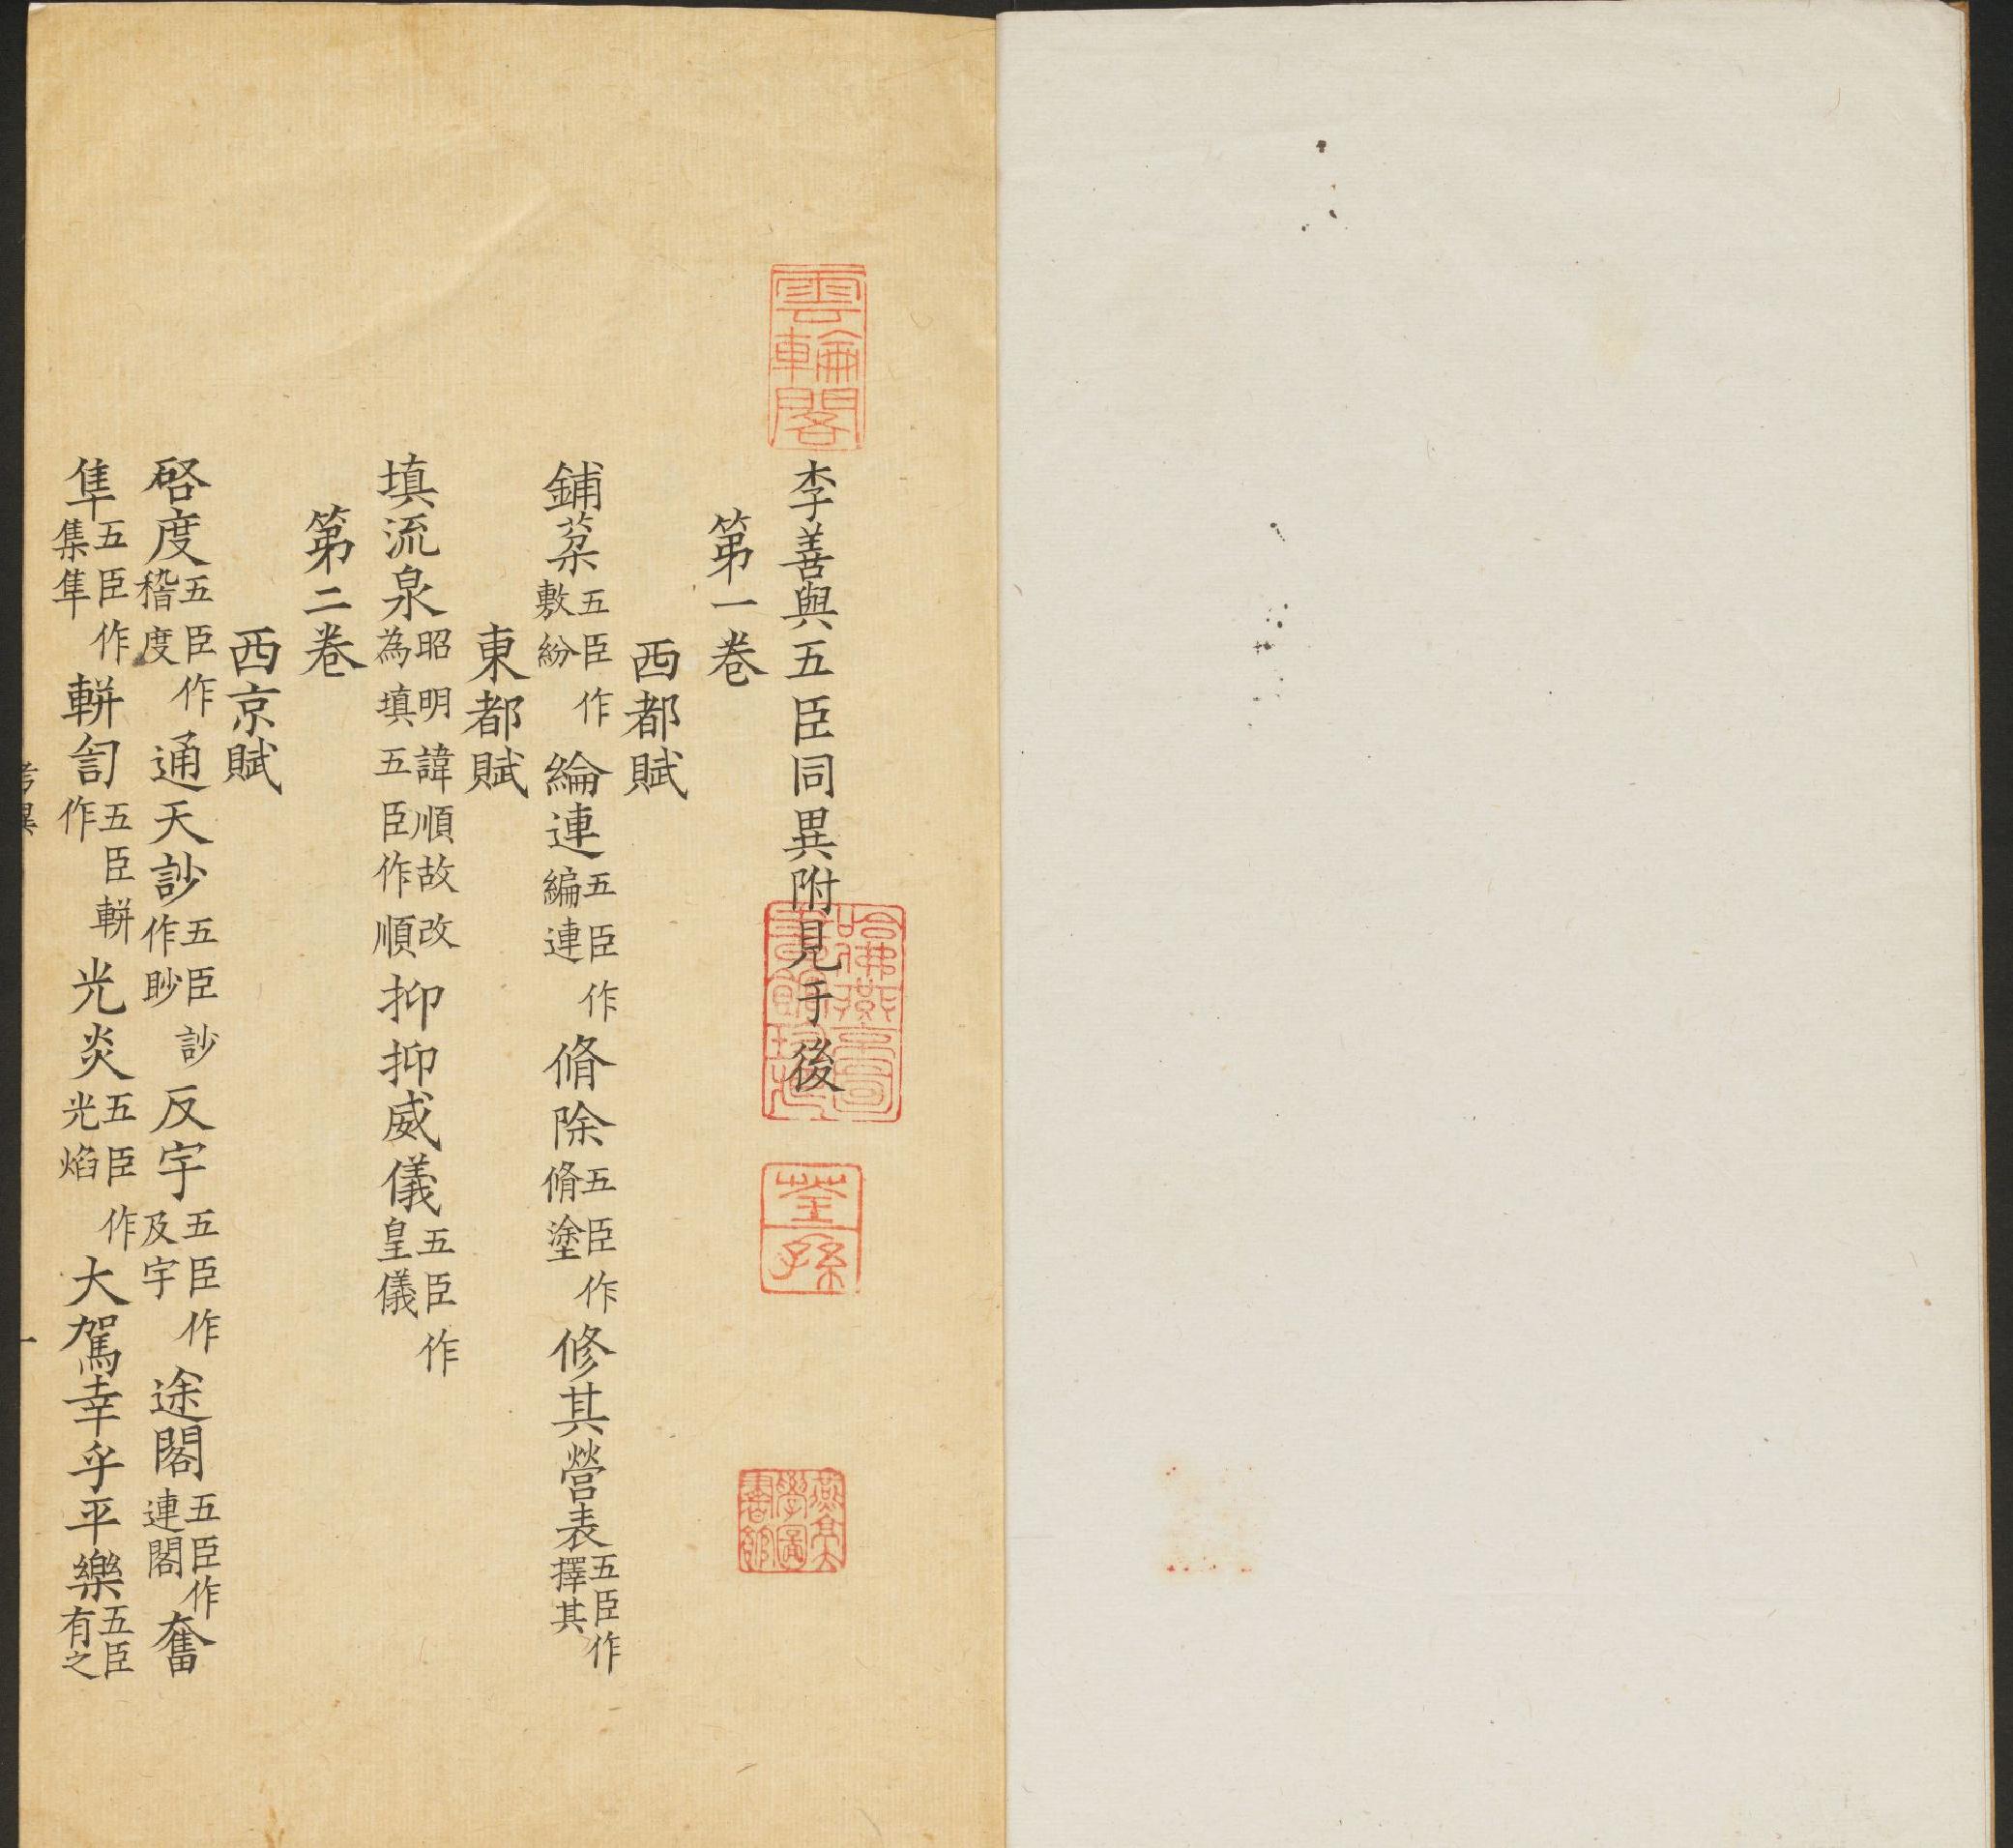 李善與五臣同異附見于後
第一卷
西都賦
鋪棻五臣作敷紛綸連五臣作編連脩除五臣作脩塗修其營表五臣作擇其
東都賦
填流泉昭明諱順故改為填五臣作順抑抑威儀五臣作皇儀
第二卷
西京賦
啓度五臣作稽度通天訬五臣訬作眇反宇五臣作及宇途閣五臣作連閣奮
隼五臣作集隼軿訇五臣軿作光炎五臣作光焰大駕幸乎平樂五臣有之
考異
一
雲輪閣
荃孫
燕京大學圖書館